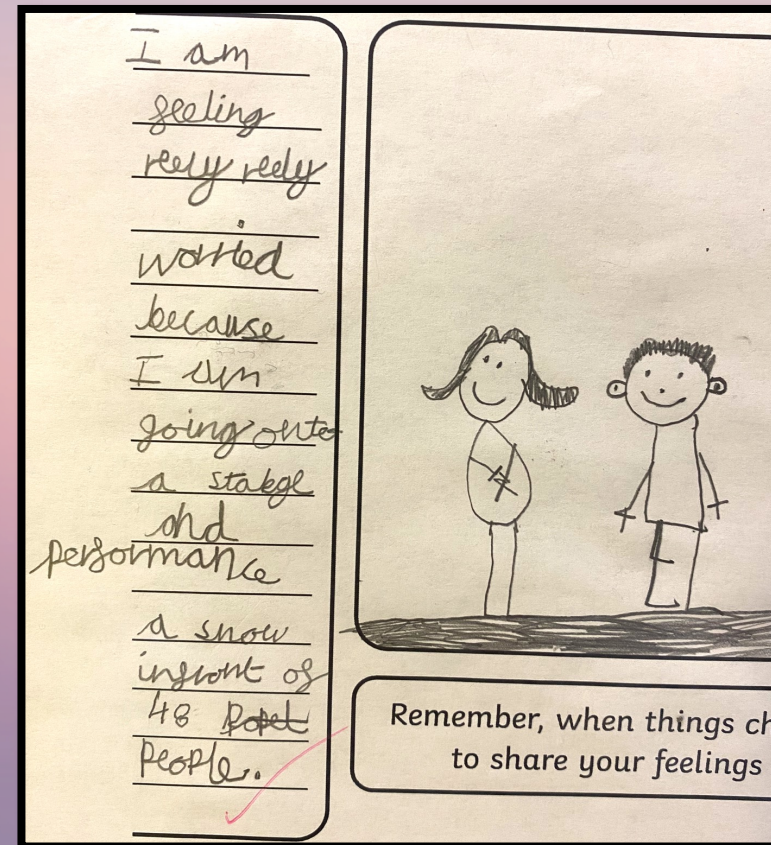 I am
feeling
reely reely
worried
because
I am
going onto
a stakge
and
performance
a show
infront of
48 Popet
People.
Remember, when things ch
to share your feelings